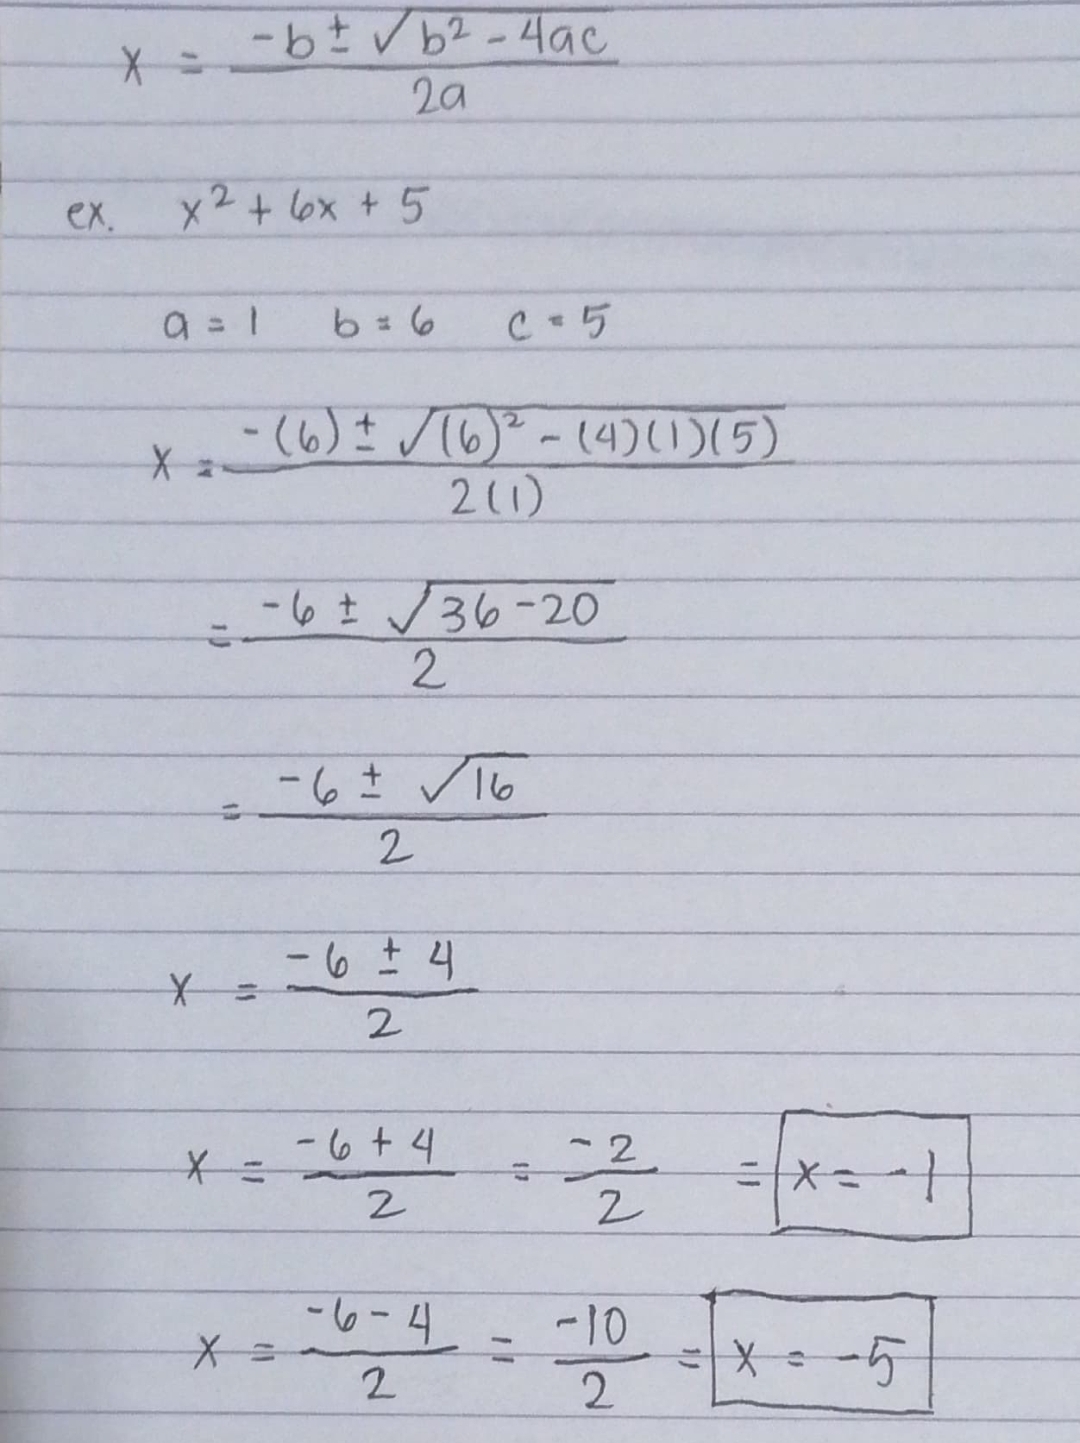 x = (-b ± √(b² - 4ac)) / 2a
ex. x² + 6x + 5
a = 1 b = 6 c = 5
x = (-(6) ± √((6)² - (4)(1)(5))) / 2(1)
= (-6 ± √(36-20)) / 2
= (-6 ± √16) / 2
x = (-6 ± 4) / 2
x = (-6 + 4) / 2 = -2 / 2 = x = -1
x = (-6 - 4) / 2 = -10 / 2 = x = -5